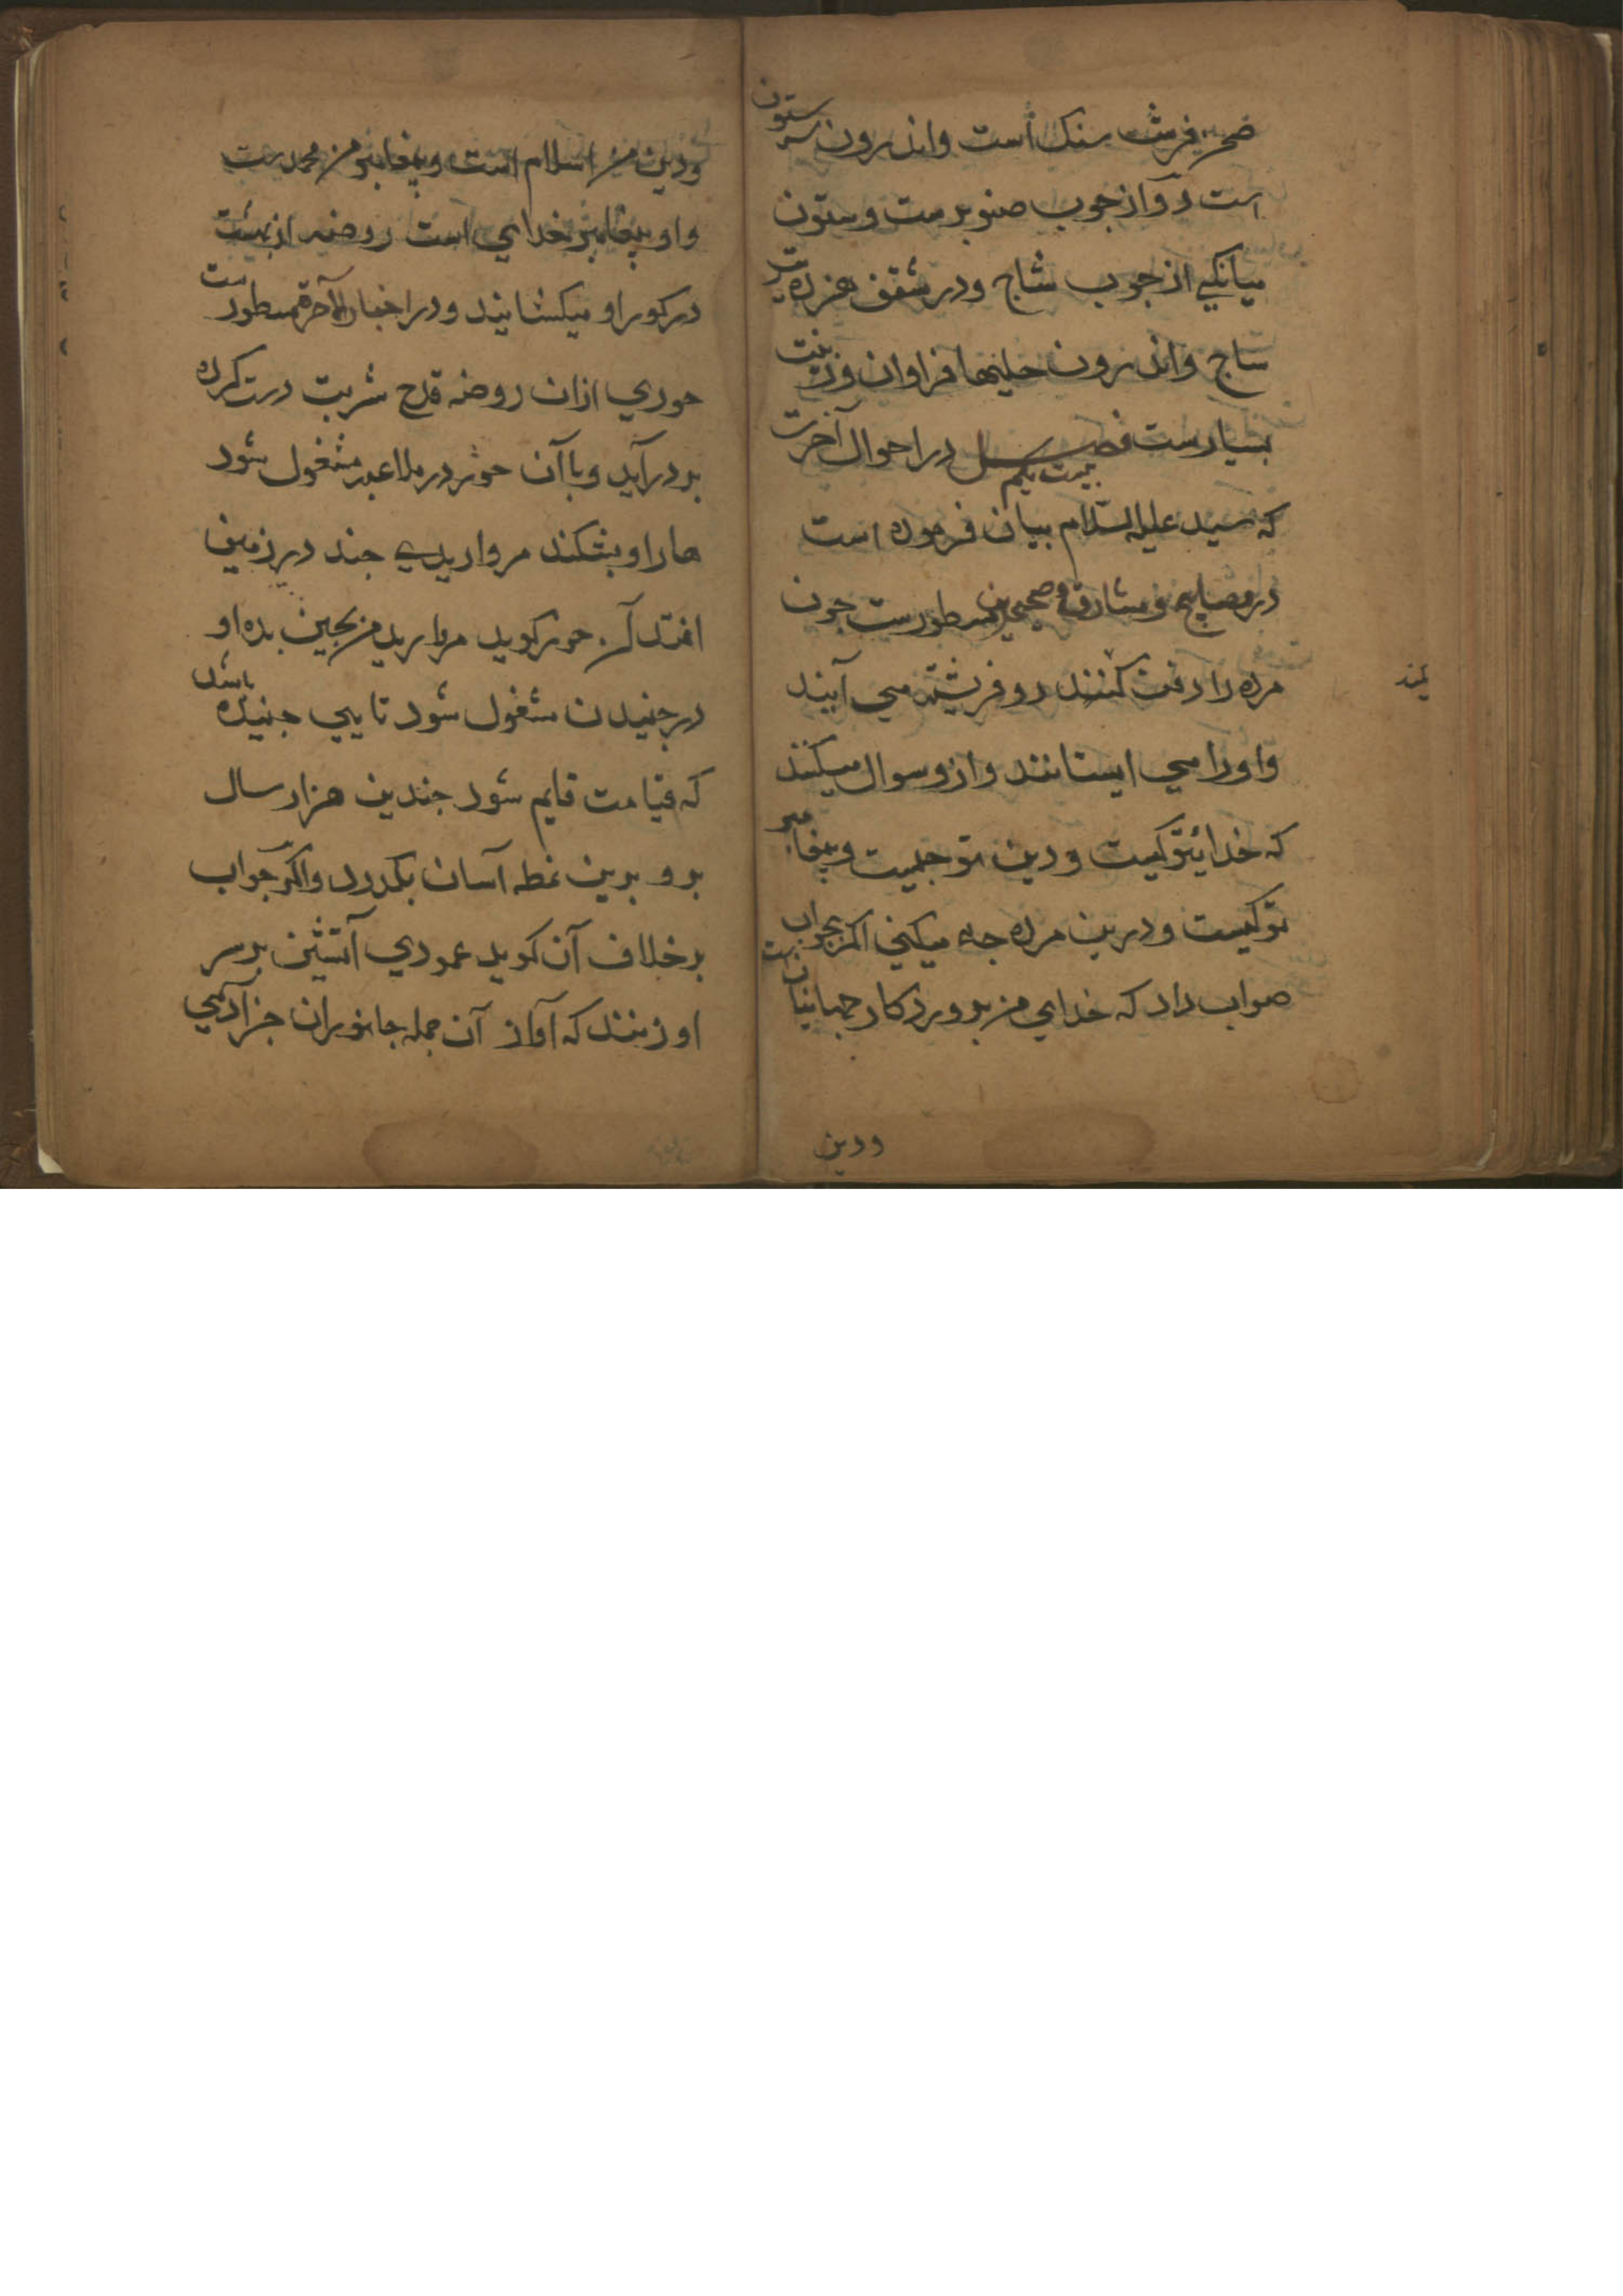 صحن فرش سنك است واندرون سه ستون
است دو از جوب صنوبرست وستون
ميانكي از جوب ساج ودر سقف هزده ت
ساج واندرون حليتها فراوان وزينت
بسيارست فصل بيست يكم در احوال آخرت
كه سيد عليه السلام بيان فرموده است
در مصابيح ومشارق وصحيحين مسطورست جون
مرده را دفن كنند دو فرشته مي آيند
واورا مي ايستانند وازو سوال ميكنند
كه خدايتو كيست ودين تو جيست وبيغامبر
تو كيست ودرين مرده جه ميكني اكر بجواب
صواب داد كه خداي من بروردكار جهانيانست
ودين
ودين من اسلام است وبيغامبر من محمدست
واو بيغامبر خداي است روضه از بهشت
در كور او ميكشايند ودر اخبار الآخرة مسطورست
حوري ازان روضه قدح شربت دست كرده
بر در آيد وباآن حور در ملاعبه مشغول شود
هار او بشكند مرواريدي جند در زمين
افتد آن حور كويد مرواريد من بجين بده او
در جنيدن مشغول شود تا يي جنيده باشد
كه قيامت قايم شود جندين هزار سال
برو برين نمطه آسان بكذرد واكر جواب
بر خلاف آن كويد عمودي آتشين بر سر
او زنند كه آواز آن جمله جانوران جز آدمي